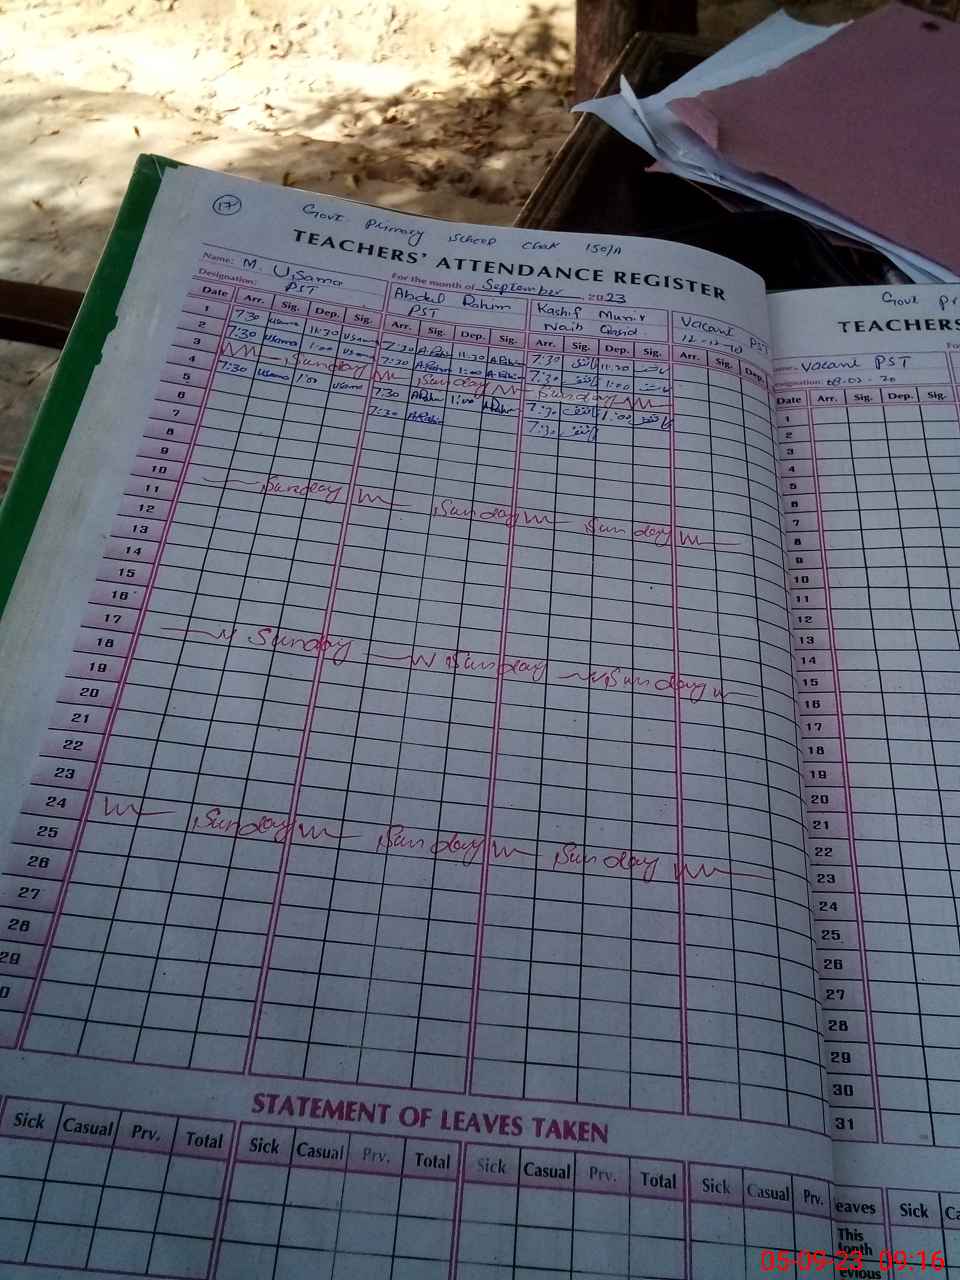 17
Govt. Primary School Chak 150/A
TEACHERS' ATTENDANCE REGISTER
Name: M. Usama
For the month of September, 2023
Designation: PST
Abdul Rahim
PST
Kashif Munir
Naib Qasid.
Vacant
PST
Date Arr. Sig. Dep. Sig. Arr. Sig. Dep. Sig. Arr. Sig. Dep. Sig. Arr. Sig. Dep.
1 7:30 usama 11:30 usama 7:30 A.Rahim 11:30 A.Rahim 7:30 کاشف 11:30 کاشف
2 7:30 usama 1:00 usama 7:30 A.Rahim 1:00 A.Rahim 7:30 کاشف 1:00 کاشف
3 Sunday Sunday Sunday
4 7:30 usama 1:00 usama 7:30 A.Rahim 1:00 A.Rahim 7:30 کاشف 1:00 کاشف
5 7:30 A.Rahim 7:30 کاشف
6
7
8
9
10 Sunday Sunday Sunday
11
12
13
14
15
16
17 Sunday Sunday Sunday
18
19
20
21
22
23
24 Sunday Sunday Sunday
25
26
27
28
29
0
STATEMENT OF LEAVES TAKEN
Sick Casual Prv. Total Sick Casual Prv. Total Sick Casual Prv. Total Sick Casual Prv.
Govt Pr
TEACHERS
Vacant PST
Date Arr. Sig. Dep. Sig.
1
2
3
4
5
6
7
8
9
10
11
12
13
14
15
16
17
18
19
20
21
22
23
24
25
26
27
28
29
30
31
eaves Sick Ca
This
evious
05-09-23 09:16